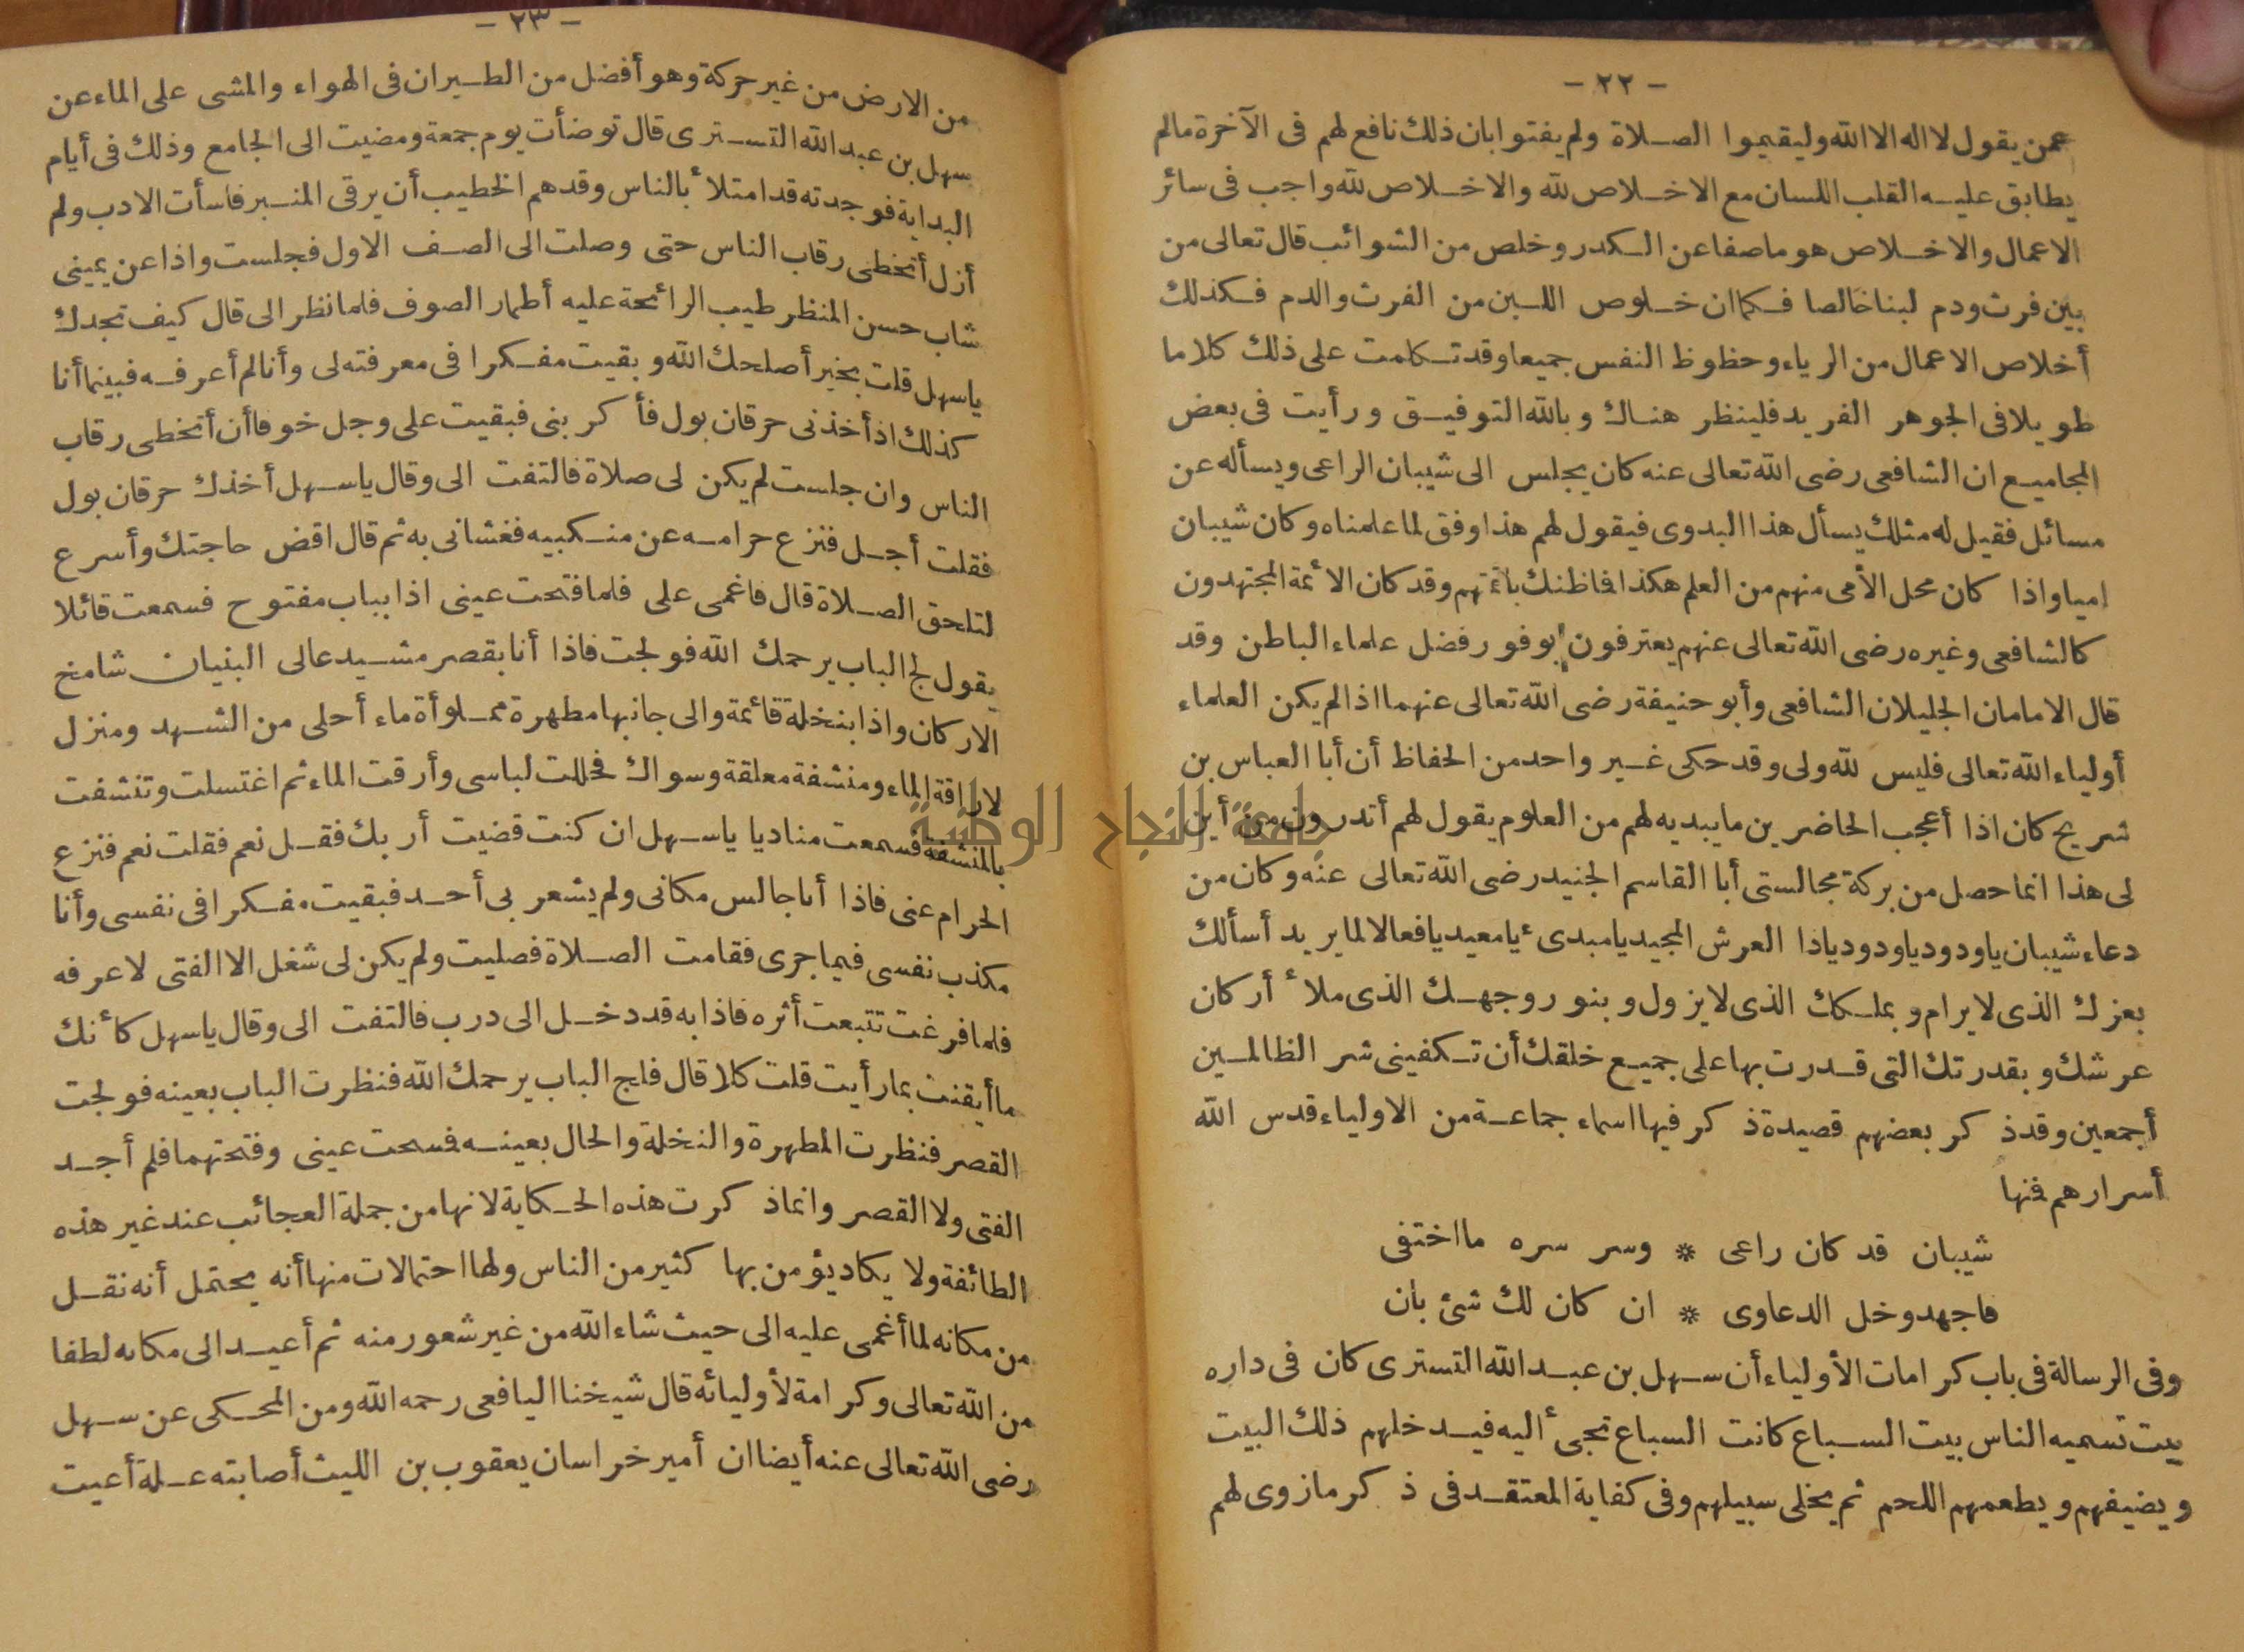 - ٢٢ -
عمن يقول لا اله الا الله وليقيموا الصلاة ولم يفتوا بان ذلك نافع لهم فى الآخرة مالم
يطابق عليه القلب اللسان مع الاخلاص لله والاخلاص لله واجب فى سائر
الاعمال والاخلاص هو ما صفا عن الكدر وخلص من الشوائب قال تعالى من
بين فرث ودم لبنا خالصا فكما ان خلوص اللبن من الفرث والدم فكذلك
أخلاص الاعمال من الرياء وحظوظ النفس جميعا وقد تكلمت على ذلك كلاما
طويلا فى الجوهر الفريد فلينظر هناك وبالله التوفيق ورأيت فى بعض
المجاميع ان الشافعى رضى الله تعالى عنه كان يجلس الى شيبان الراعى ويسأله عن
مسائل فقيل له مثلك يسأل هذا البدوى فيقول لهم هذا وفق لما علمناه وكان شيبان
اميا واذا كان محل الأمى منهم من العلم هكذا فما ظنك بائمتهم وقد كان الائمة المجتهدون
كالشافعى وغيره رضى الله تعالى عنهم يعترفون بوفور فضل علماء الباطن وقد
قال الامامان الجليلان الشافعى وأبو حنيفة رضى الله تعالى عنهما اذا لم يكن العلماء
أولياء الله تعالى فليس لله ولى وقد حكى غير واحد من الحفاظ أن أبا العباس بن
شريح كان اذا أعجب الحاضرين ما يبديه لهم من العلوم يقول لهم أتدرون من أين
لى هذا انما حصل من بركة مجالستى أبا القاسم الجنيد رضى الله تعالى عنه وكان من
دعاء شيبان يا ودود يا ودود يا ذا العرش المجيد يا مبدئ يا معيد يا فعالا لما يريد أسألك
بعزك الذى لا يرام وبملكك الذى لا يزول وبنور وجهك الذى ملأ أركان
عرشك وبقدرتك التى قدرت بها على جميع خلقك أن تكفينى شر الظالمين
أجمعين وقد ذكر بعضهم قصيدة ذكر فيها اسماء جماعة من الاولياء قدس الله
أسرارهم فمنها
شيبان قد كان راعى * وسر سره ما اختفى
فاجهد وخل الدعاوى * ان كان لك شئ بان
وفى الرسالة فى باب كرامات الأولياء أن سهل بن عبد الله التسترى كان فى داره
بيت تسميه الناس بيت السباع كانت السباع تجىء أليه فيدخلهم ذلك البيت
ويضيفهم ويطعمهم اللحم ثم يخلى سبيلهم وفى كفاية المعتقد فى ذكر ما زوى لهم
- ٢٣ -
من الارض من غير حركة وهو أفضل من الطيران فى الهواء والمشى على الماء عن
سهل بن عبد الله التسترى قال توضأت يوم جمعة ومضيت الى الجامع وذلك فى أيام
البداية فوجدته قد امتلأ بالناس وقد هم الخطيب أن يرقى المنبر فاسأت الادب ولم
أزل أتخطى رقاب الناس حتى وصلت الى الصف الاول فجلست واذا عن يمينى
شاب حسن المنظر طيب الرائحة عليه أطمار الصوف فلما نظر الى قال كيف تجدك
ياسهل قلت بخير أصلحك الله وبقيت مفكرا فى معرفته لى وأنا لم أعرفه فبينما أنا
كذلك اذ أخذنى حرقان بول فأكربنى فبقيت على وجل خوفا أن أتخطى رقاب
الناس وان جلست لم يكن لى صلاة فالتفت الى وقال ياسهل أخذك حرقان بول
فقلت أجل فنزع حرامه عن منكبيه فغشانى به ثم قال اقض حاجتك وأسرع
لتلحق الصلاة قال فاغمى على فلما فتحت عينى اذا بباب مفتوح فسمعت قائلا
يقول لج الباب يرحمك الله فولجت فاذا أنا بقصر مشيد عالى البنيان شامخ
الاركان واذا بنخلة قائمة والى جانبها مطهرة مملوأة ماء أحلى من الشهد ومنزل
لاراقة الماء ومنشفة معلقة وسواك فحللت لباسى وأرقت الماء ثم اغتسلت وتنشفت
بالمنشفة فسمعت مناديا ياسهل ان كنت قضيت أربك فقل نعم فقلت نعم فنزع
الحرام عنى فاذا أنا جالس مكانى ولم يشعر بى أحد فبقيت مفكرا فى نفسى وأنا
مكذب نفسى فيما جرى فقامت الصلاة فصليت ولم يكن لى شغل الا الفتى لاعرفه
فلما فرغت تتبعت أثره فاذا به قد دخل الى درب فالتفت الى وقال ياسهل كأنك
ما أيقنت بما رأيت قلت كلا قال فلج الباب يرحمك الله فنظرت الباب بعينه فولجت
القصر فنظرت المطهرة والنخلة والحال بعينه فمسحت عينى وفتحتهما فلم أجد
الفتى ولا القصر وانما ذكرت هذه الحكاية لانها من جملة العجائب عند غير هذه
الطائفة ولا يكاد يؤمن بها كثير من الناس ولها احتمالات منها أنه يحتمل أنه نقل
من مكانه لما أغمى عليه الى حيث شاء الله من غير شعور منه ثم أعيد الى مكانه لطفا
من الله تعالى وكرامة لأوليائه قال شيخنا اليافعى رحمه الله ومن المحكى عن سهل
رضى الله تعالى عنه أيضا ان أمير خراسان يعقوب بن الليث أصابته علة أعيت
جامعة النجاح الوطنية